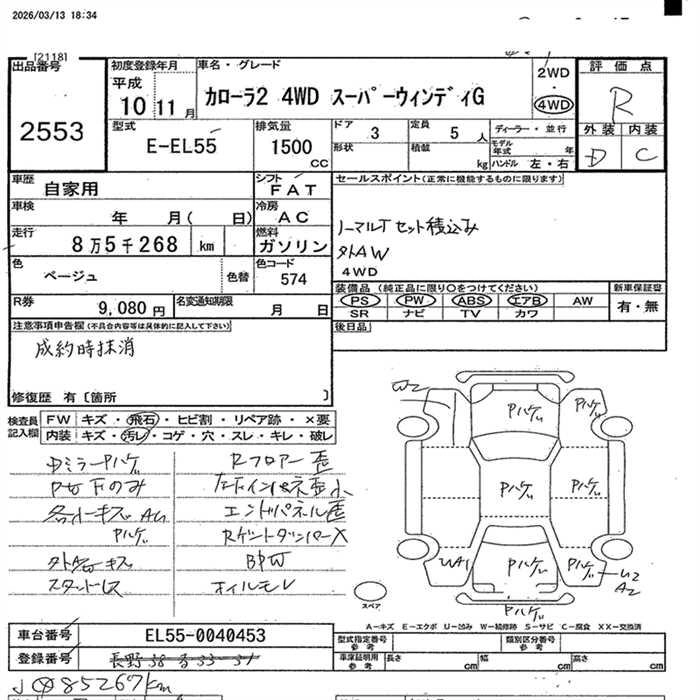 2026/03/13 18:34
[2118]
出品番号
2553
初度登録年月
平成
10 11 月
車名・グレード
カローラ2 4WD スーパーウィンディG
2WD
・
4WD
評価点
R
外装 内装
D C
型式
E-EL55
排気量
1500
cc
ドア
3
定員
5 人
ディーラー・並行
形状
積載
kg
モデル年式 年
ハンドル 左・右
車歴
自家用
シフト
FAT
車検
年 月( 日)
冷房
AC
走行
8万5千268 km
燃料
ガソリン
色
ベージュ
色替
色コード
574
R券
9,080 円
名変通知期限
月 日
セールスポイント(正常に機能するものに限ります)
ノーマルTセット積込み
外AW
4WD
装備品(純正品に限り○をつけてください)
PS PW ABS エアB AW
SR ナビ TV カワ
新車保証書
有・無
後日品
注意事項申告欄(不具合内容等は具体的に記入して下さい)
成約時抹消
修復歴 有〔箇所 〕
検査員
記入欄
FW キズ・飛石・ヒビ割・リペア跡・×要
内装 キズ・汚レ・コゲ・穴・スレ・キレ・破レ
Rフロアー歪
エンドパネル歪
オイルモレ
W2
Pハゲ
Pハゲ
Pハゲ
Pハゲ
Pハゲ
Pハゲ
UA1
U2
A2
Pハゲ
スペア
A-キズ E-エクボ U-凹み W-補修跡 S-サビ C-腐食 XX-交換済
車台番号
EL55-0040453
登録番号
型式指定番号
参考
類別区分番号
参考
車庫証明用
参考
長さ cm
幅 cm
高さ cm
85267km